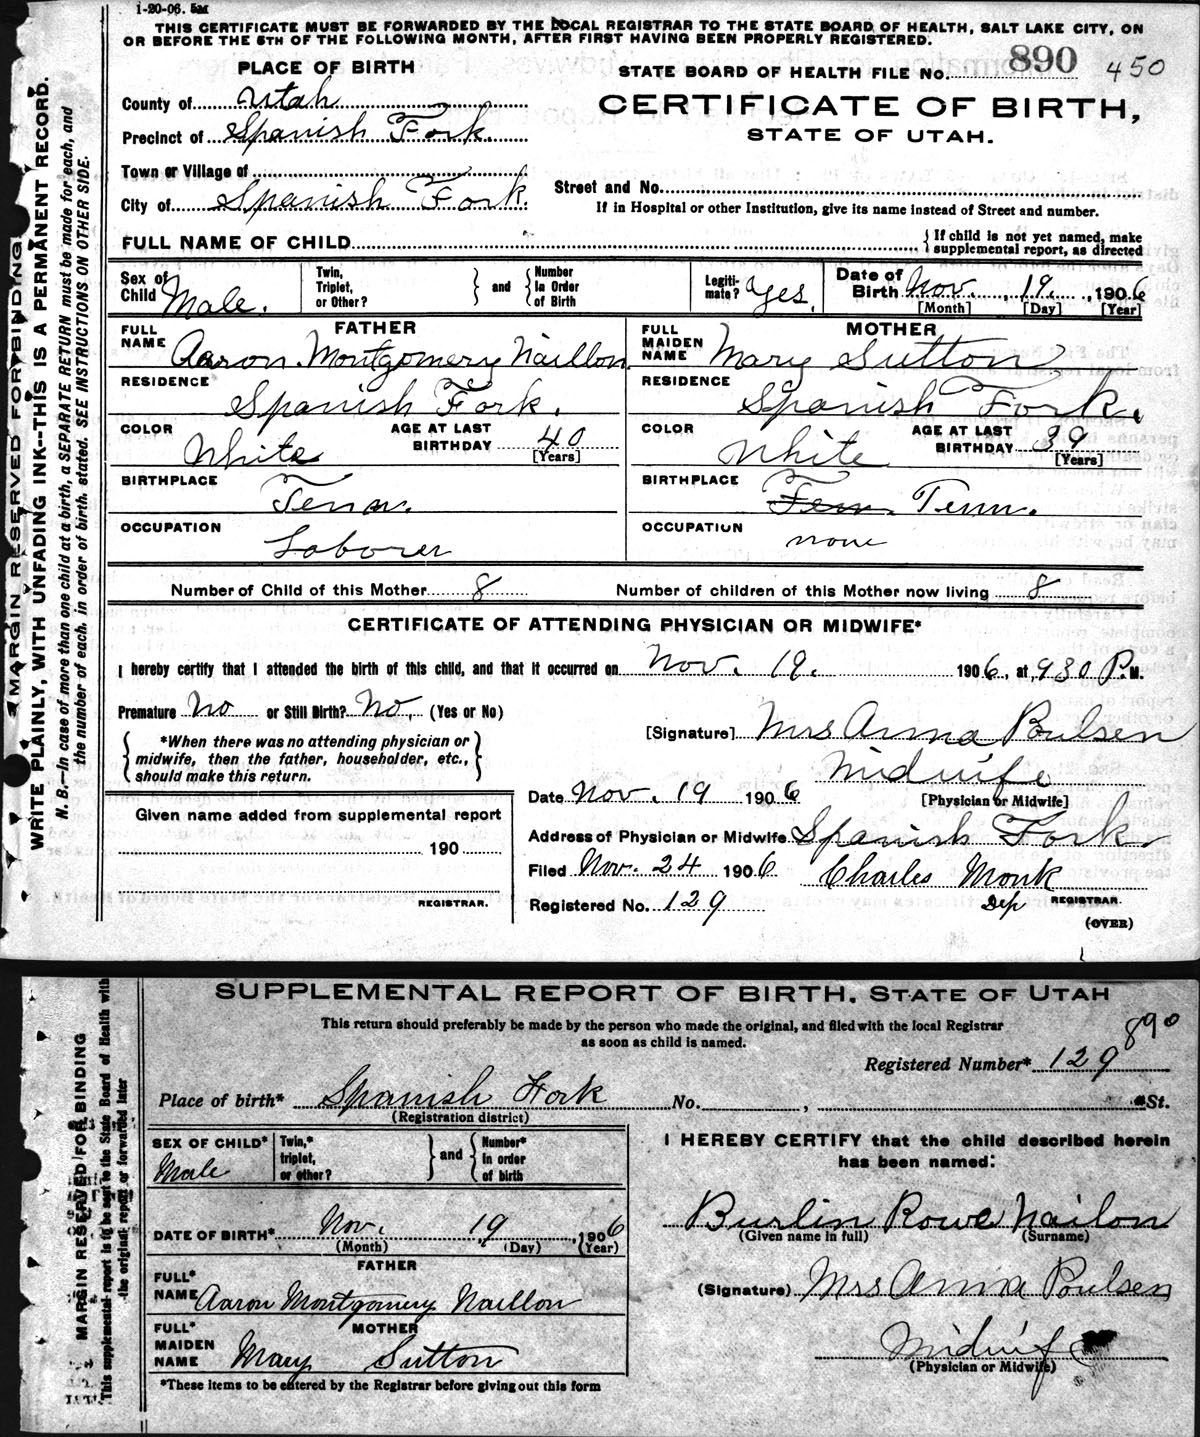 1-20-06. 5M
THIS CERTIFICATE MUST BE FORWARDED BY THE LOCAL REGISTRAR TO THE STATE BOARD OF HEALTH, SALT LAKE CITY, ON
OR BEFORE THE 5TH OF THE FOLLOWING MONTH, AFTER FIRST HAVING BEEN PROPERLY REGISTERED.
MARGIN RESERVED FOR BINDING
WRITE PLAINLY, WITH UNFADING INK--THIS IS A PERMANENT RECORD.
N. B.—In case of more than one child at a birth, a SEPARATE RETURN must be made for each, and
the number of each, in order of birth, stated. SEE INSTRUCTIONS ON OTHER SIDE.
PLACE OF BIRTH
County of Utah
Precinct of Spanish Fork.
Town or Village of
City of Spanish Fork.
STATE BOARD OF HEALTH FILE No. 890 450
CERTIFICATE OF BIRTH,
STATE OF UTAH.
Street and No.
If in Hospital or other Institution, give its name instead of Street and number.
FULL NAME OF CHILD { If child is not yet named, make
supplemental report, as directed
Sex of Child Male. Twin, Triplet, or Other? } and { Number In Order of Birth Legiti- mate? Yes. Date of Birth Nov. 19. 1906
[Month] [Day] [Year]
FATHER
FULL NAME Aaron Montgomery Naillon.
RESIDENCE
Spanish Fork.
COLOR White AGE AT LAST BIRTHDAY 40 [Years]
BIRTHPLACE
Tenn.
OCCUPATION
Laborer
MOTHER
FULL MAIDEN NAME Mary Sutton
RESIDENCE
Spanish Fork.
COLOR White AGE AT LAST BIRTHDAY 39 [Years]
BIRTHPLACE
Tenn. Tenn.
OCCUPATION
none
Number of Child of this Mother 8 Number of children of this Mother now living 8
CERTIFICATE OF ATTENDING PHYSICIAN OR MIDWIFE*
I hereby certify that I attended the birth of this child, and that it occurred on Nov. 19. 1906, at 930 P.M.
Premature No or Still Birth? No. (Yes or No)
{ *When there was no attending physician or
midwife, then the father, householder, etc.,
should make this return. }
[Signature] Mrs Anna Poulsen
Midwife
[Physician or Midwife]
Date Nov. 19 1906
Address of Physician or Midwife Spanish Fork.
Filed Nov. 24 1906 Charles Monk
Registered No. 129 Dep REGISTRAR.
(OVER)
Given name added from supplemental report
190
REGISTRAR.
SUPPLEMENTAL REPORT OF BIRTH. STATE OF UTAH
This return should preferably be made by the person who made the original, and filed with the local Registrar
as soon as child is named.
890
Registered Number* 129
MARGIN RESERVED FOR BINDING
This supplemental report is to be sent to the State Board of Health with
the original report or forwarded later
Place of birth* Spanish Fork No. , St.
(Registration district)
SEX OF CHILD* Male Twin,* triplet, or other? } and { Number* in order of birth
DATE OF BIRTH* Nov. 19 1906
(Month) (Day) (Year)
FATHER
FULL* NAME Aaron Montgomery Naillon
MOTHER
FULL* MAIDEN NAME Mary Sutton
*These items to be entered by the Registrar before giving out this form
I HEREBY CERTIFY that the child described herein
has been named:
Burlin Rowe Nailon
(Given name in full) (Surname)
(Signature) Mrs Anna Poulsen
Midwife
(Physician or Midwife)